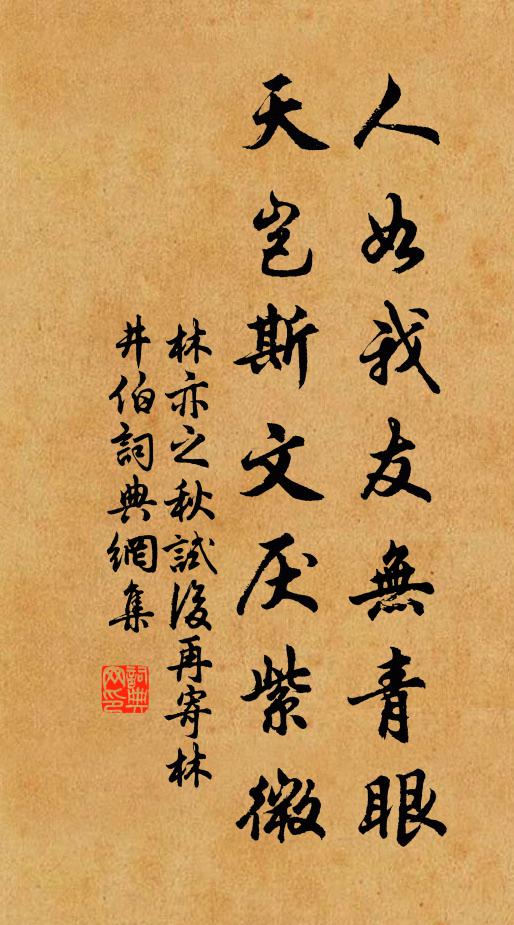 人如我友無青眼
天豈斯文厌紫微
林亦之秋試後再寄林
井伯詞典網集
詞典
网印